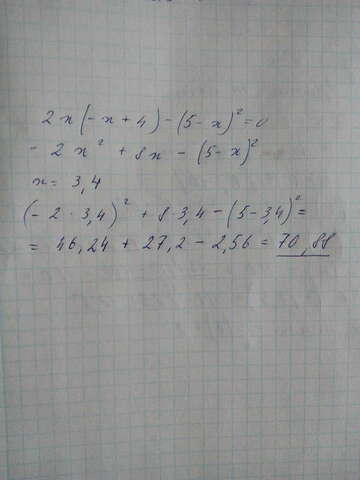 2x(-x+4)-(5-x)²=0
- 2x² + 8x - (5-x)²
x= 3,4
(-2·3,4)² + 8·3,4-(5-3,4)²=
= 46,24 + 27,2 - 2,56 = 70,88